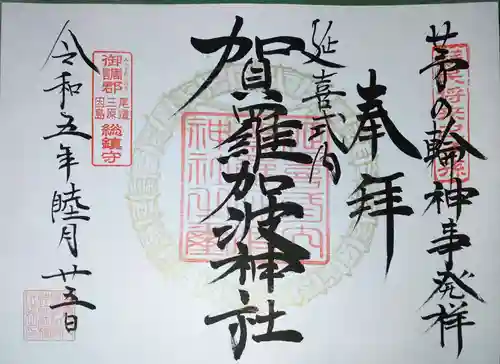 茅の輪神事発祥
奉拝
延喜式内
賀羅加波神社
御調郡
尾道
三原
因島
総鎮守
令和五年睦月廿五日